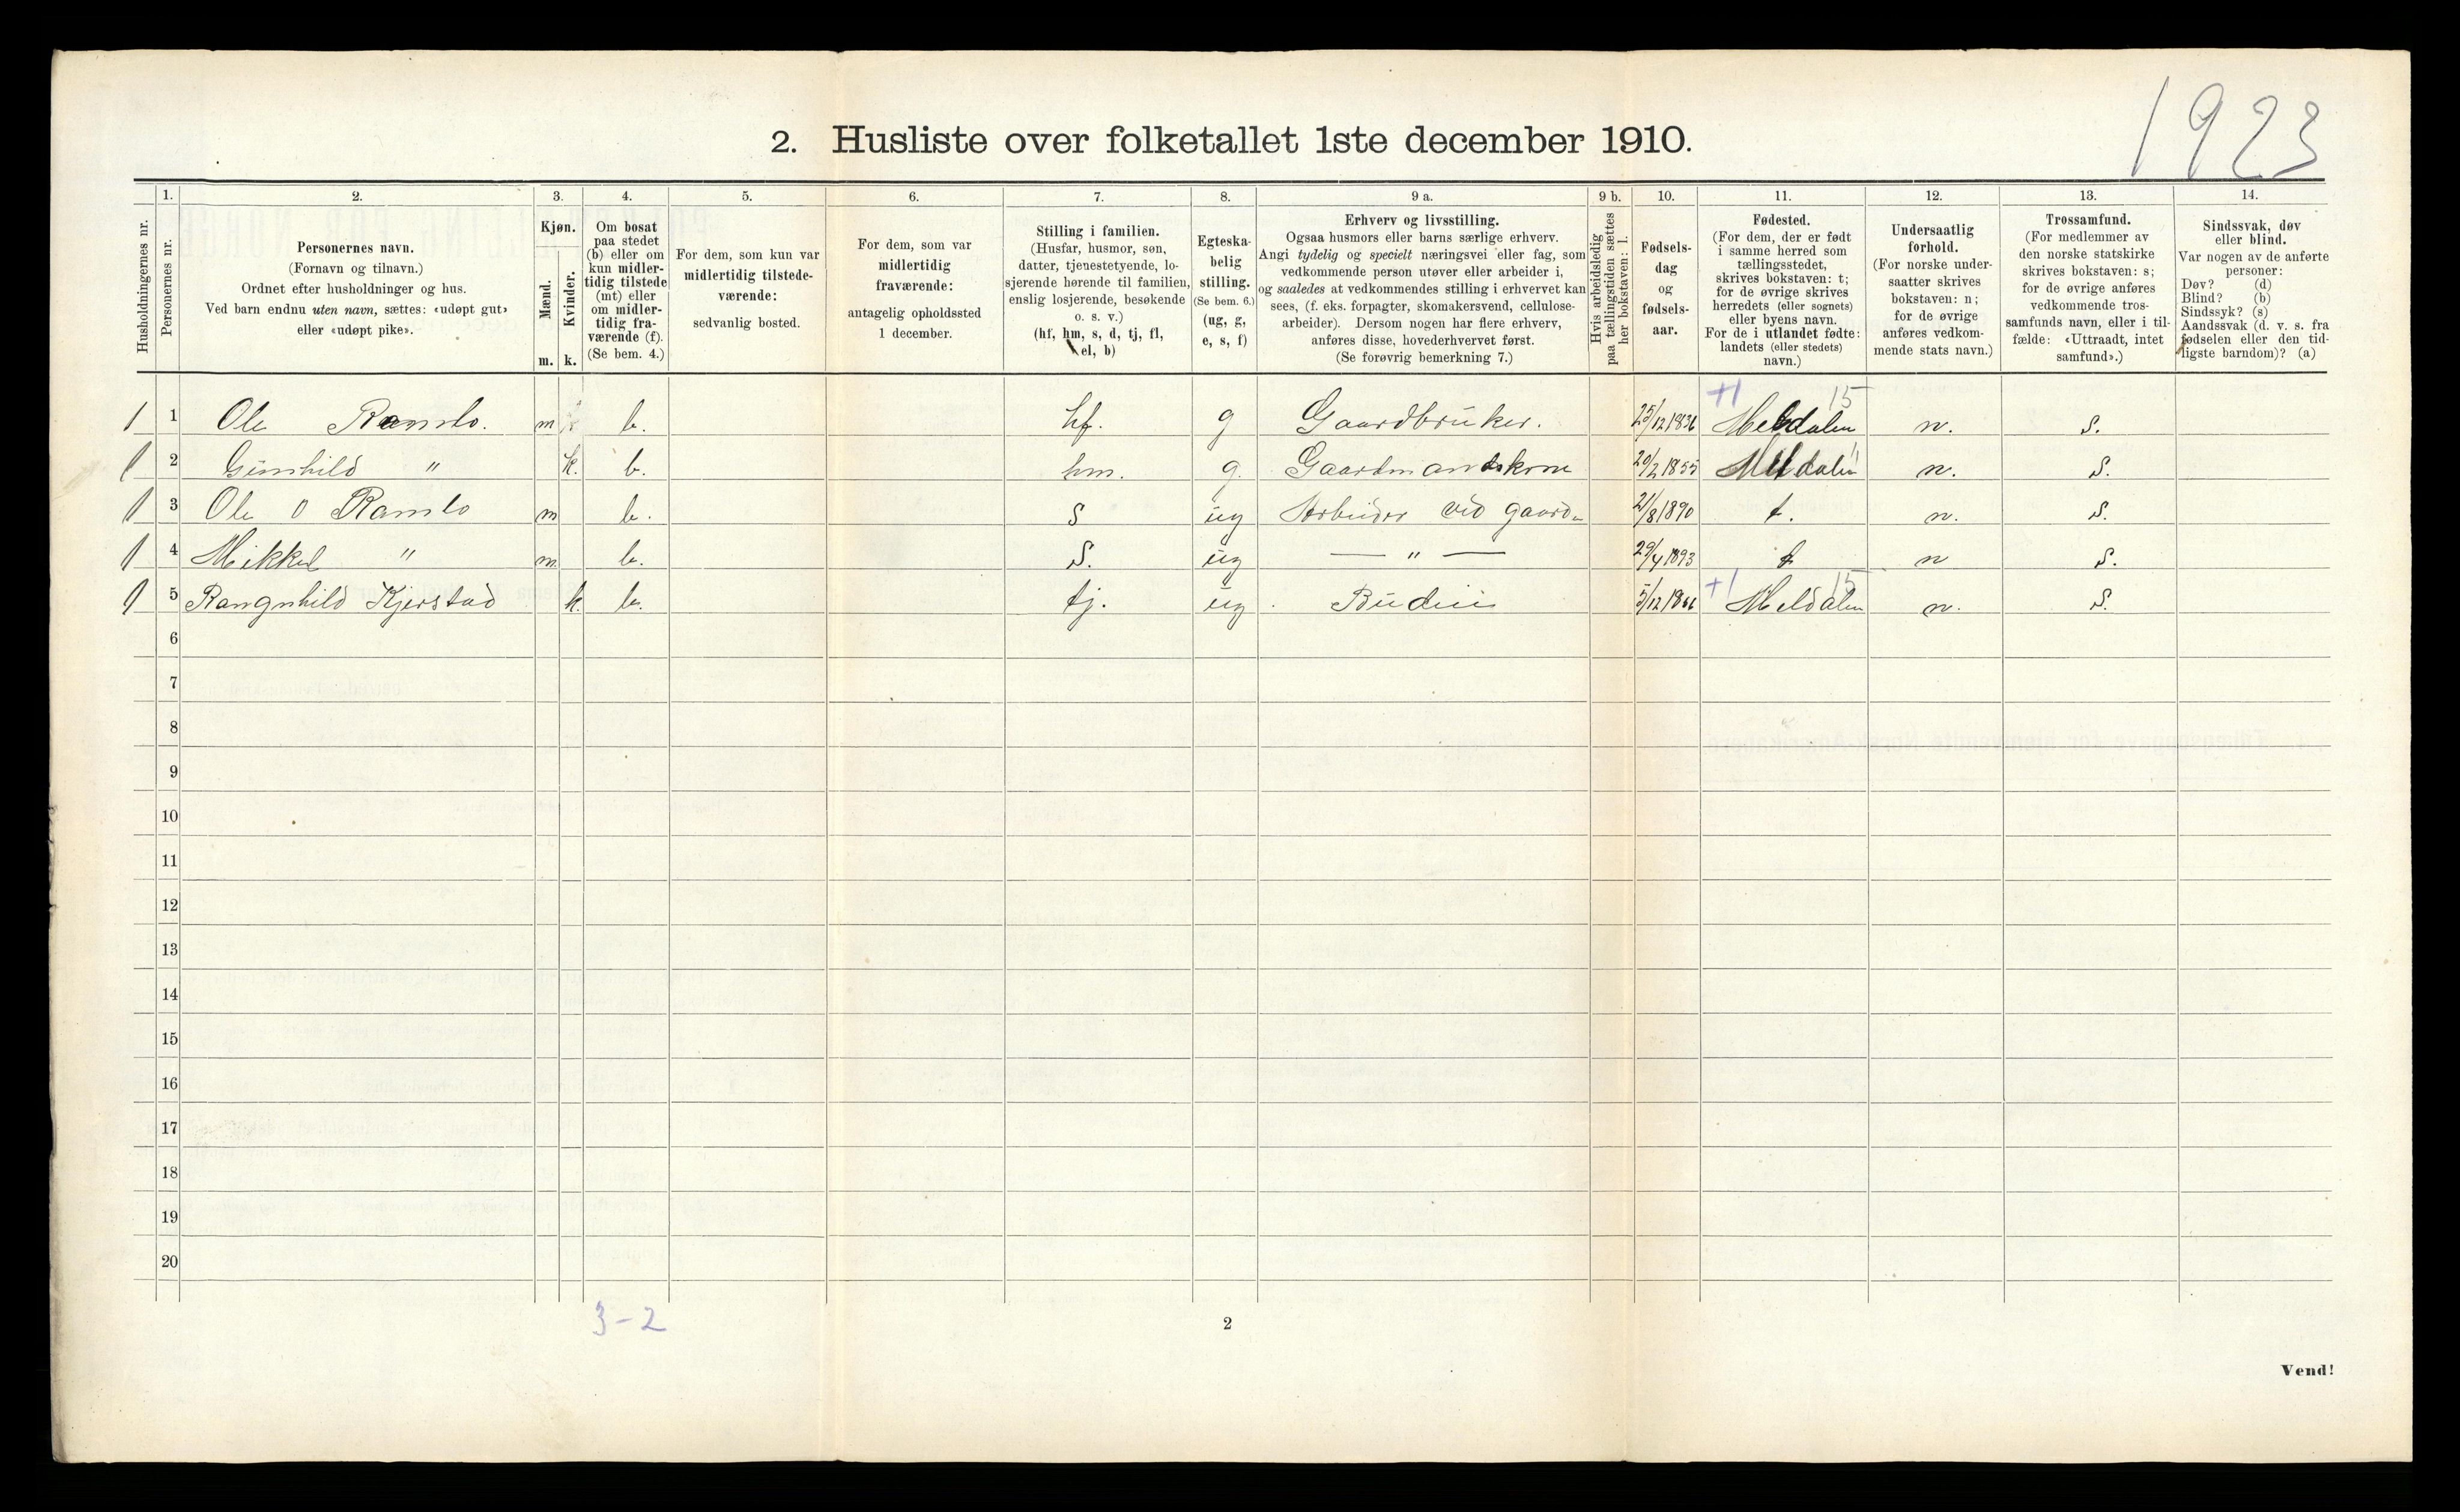 1923
2. Husliste over folketallet 1ste december 1910.
Husholdningernes nr.
1.
Personernes nr.
2.
Personernes navn.
(Fornavn og tilnavn.)
Ordnet efter husholdninger og hus.
Ved barn endnu uten navn, sættes: «udøpt gut»
eller «udøpt pike».
3.
Kjøn.
Mænd.
m.
Kvinder.
k.
4.
Om bosat
paa stedet
(b) eller om
kun midler-
tidig tilstede
(mt) eller
om midler-
tidig fra-
værende (f).
(Se bem. 4.)
5.
For dem, som kun var
midlertidig tilstede-
værende:
sedvanlig bosted.
6.
For dem, som var
midlertidig
fraværende:
antagelig opholdssted
1 december.
7.
Stilling i familien.
(Husfar, husmor, søn,
datter, tjenestetyende, lo-
sjerende hørende til familien,
enslig losjerende, besøkende
o. s. v.)
(hf, hm, s, d, tj, fl,
el, b)
8.
Egteska-
belig
stilling.
(Se bem. 6.)
(ug, g,
e, s, f)
9 a.
Erhverv og livsstilling.
Ogsaa husmors eller barns særlige erhverv.
Angi tydelig og specielt næringsvei eller fag, som
vedkommende person utøver eller arbeider i,
og saaledes at vedkommendes stilling i erhvervet kan
sees, (f. eks. forpagter, skomakersvend, cellulose-
arbeider). Dersom nogen har flere erhverv,
anføres disse, hovederhvervet først.
(Se forøvrig bemerkning 7.)
9 b.
Hvis arbeidsledig
paa tællingstiden sættes
her bokstaven: l.
10.
Fødsels-
dag
og
fødsels-
aar.
11.
Fødested.
(For dem, der er født
i samme herred som
tællingsstedet,
skrives bokstaven: t;
for de øvrige skrives
herredets (eller sognets)
eller byens navn.
For de i utlandet fødte:
landets (eller stedets)
navn.)
12.
Undersaatlig
forhold.
(For norske under-
saatter skrives
bokstaven: n;
for de øvrige
anføres vedkom-
mende stats navn.)
13.
Trossamfund.
(For medlemmer av
den norske statskirke
skrives bokstaven: s;
for de øvrige anføres
vedkommende tros-
samfunds navn, eller i til-
fælde: «Uttraadt, intet
samfund».)
14.
Sindssvak, døv
eller blind.
Var nogen av de anførte
personer:
Døv? (d)
Blind? (b)
Sindssyk? (s)
Aandssvak (d. v. s. fra
fødselen eller den tid-
ligste barndom)? (a)
+1 15
1 1 Ole Ramlo. m b. hf. g Gaardbruker. 25/12 1836 Meldalen n. S.
1 2 Gunhild " k. b. hm. g. Gaardmandskone 20/2 1855 Meldalen n. S.
1 3 Ole O Ramlo m b. S ug Arbeider ved gaard. 21/8 1890 t. n. S.
1 4 Mikkel " m b. S. ug — " — 29/4 1893 t n S.
+1 15
1 5 Rangnhild Kjerstad k. b. tj. ug Budeie 5/12 1866 Meldalen n. S.
6
7
8
9
10
11
12
13
14
15
16
17
18
19
20
3-2
2
Vend!